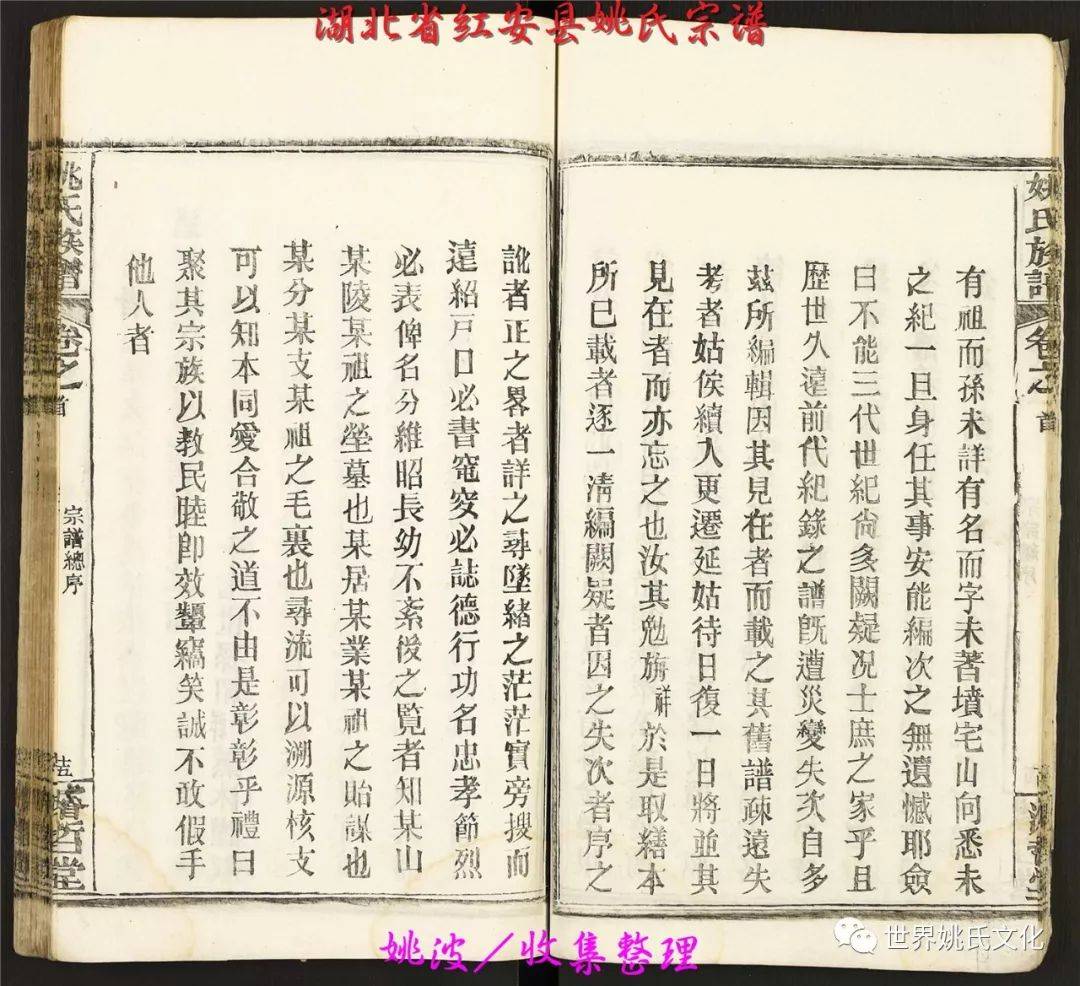 湖北省红安县姚氏宗谱
姚氏族譜
卷之
首
有祖而孫未詳有名而字未著墳宅山向悉未
之紀一旦身任其事安能編次之無遺憾耶僉
曰不能三代世紀尙多闕疑况士庶之家乎且
歴世久遠前代紀錄之譜旣遭災變失次自多
茲所編輯因其見在者而載之其舊譜疎遠失
考者姑俟續入更遷延姑待日復一日將並其
見在者而亦忘之也汝其勉旃祥於是取繕本
所已載者逐一淸編闕疑者因之失次者序之
訛者正之畧者詳之尋墜緒之茫茫實旁搜而
遠紹戸口必書窀穸必誌德行功名忠孝節烈
必表俾名分維昭長幼不紊後之覽者知某山
某陵某祖之塋墓也某居某業某祖之貽謀也
某分某支某祖之毛裏也尋流可以溯源核支
可以知本同愛合敬之道不由是彰彰乎禮曰
聚其宗族以教民睦卽效顰竊笑誠不敢假手
他人者
姚氏族譜
卷之
首
宗譜總序
哲堂
姚波／收集整理
世界姚氏文化